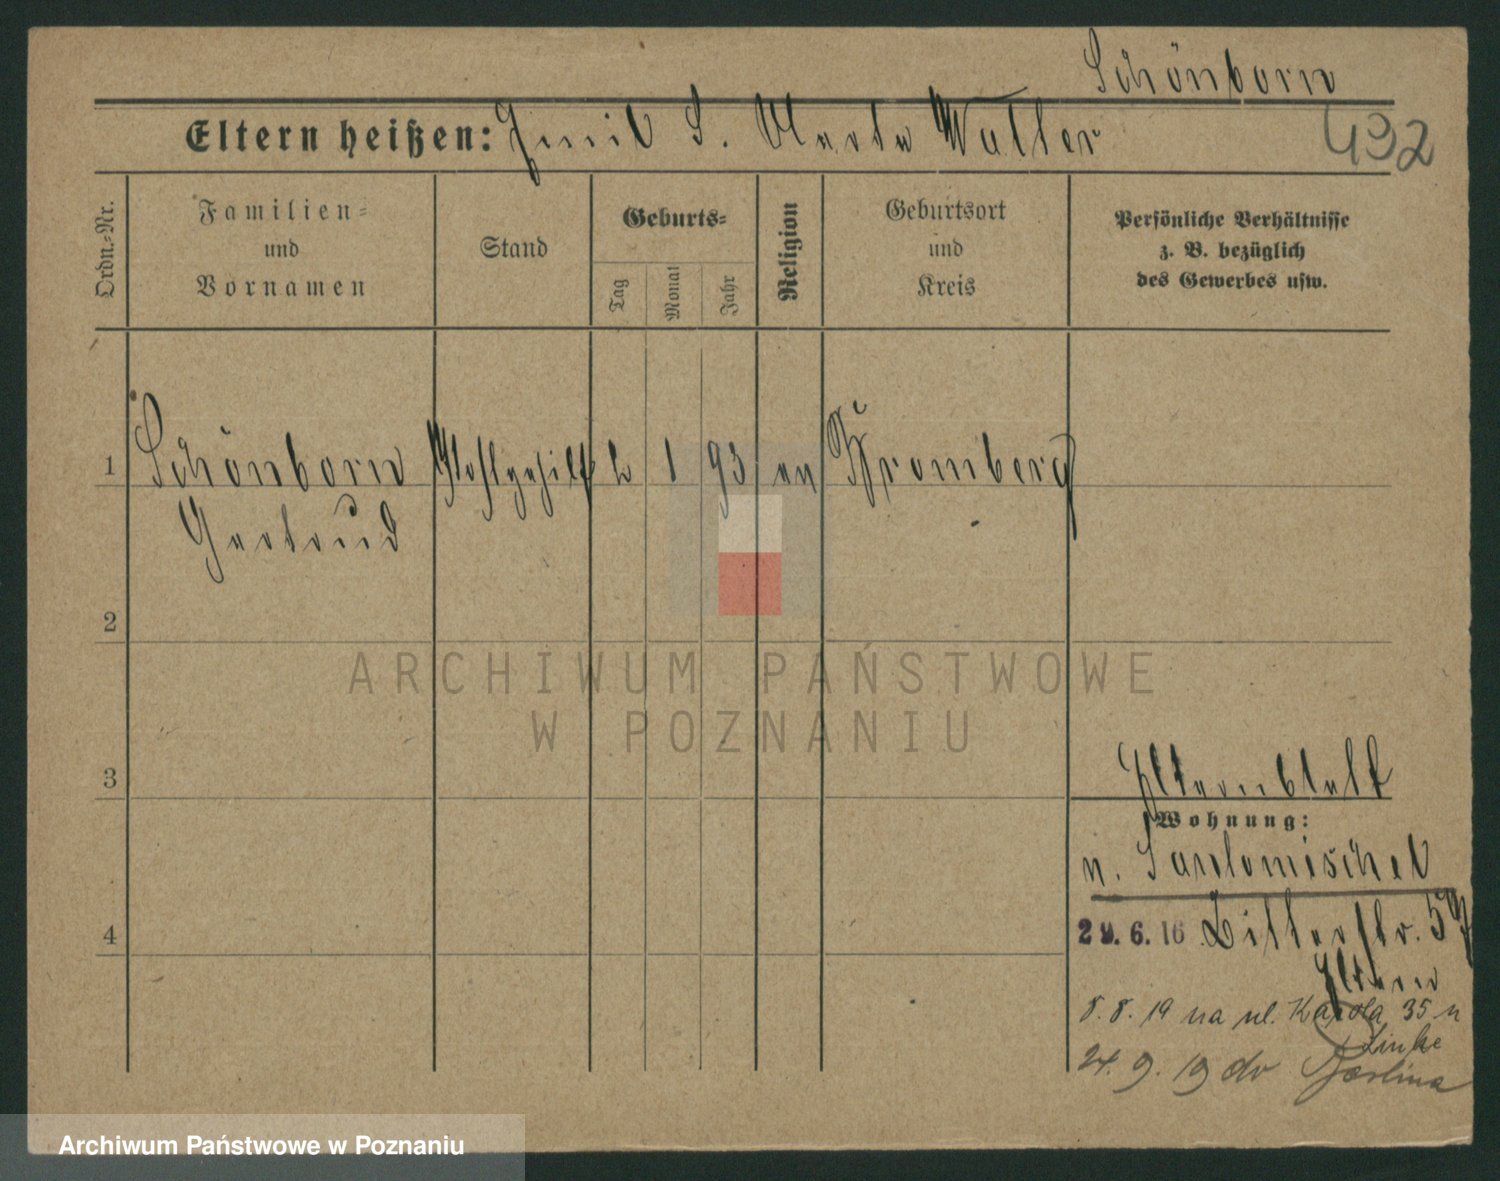 Schönborn
Eltern heißen: Emil S. Marta Walter
492
Ordn.-Nr.
Familien-
und
Vornamen
Stand
Geburts-
Tag
Monat
Jahr
Religion
Geburtsort
und
Kreis
Persönliche Verhältnisse
z. B. bezüglich
des Gewerbes usw.
1 Schönborn 1 93 ev Bromberg
Gertrud
2
ARCHIWUM PAŃSTWOWE
W POZNANIU
3
Wohnung:
n. Santomischel
4
29.6.16 Ritterstr.
Eltern
8.8.19 na ul. Karola 35 u
Linke
24.9.19 do Berlina
Archiwum Państwowe w Poznaniu